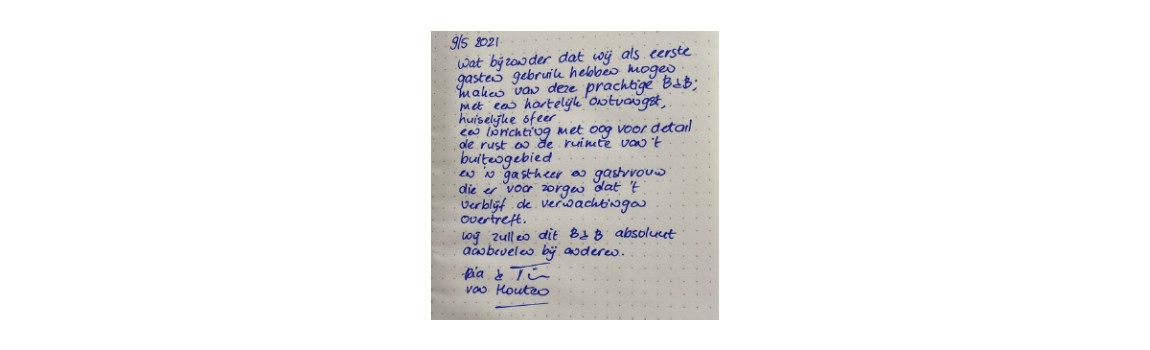 9/5 2021
wat bijzonder dat wij als eerste
gasten gebruik hebben mogen
maken van deze prachtige B&B;
met een hartelijk ontvangst,
huiselijke sfeer
een inrichting met oog voor detail
de rust en de ruimte van 't
buitengebied
en 'n gastheer en gastvrouw
die er voor zorgen dat 't
verblijf de verwachtingen
overtreft.
wij zullen dit B&B absoluut
aanbevelen bij anderen.
Ria & Tim
van Houten